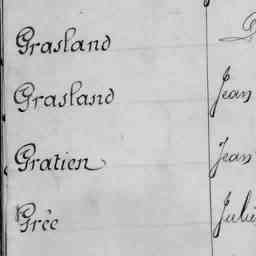 Grasland
Grasland Jean
Gratien Jean
Grée